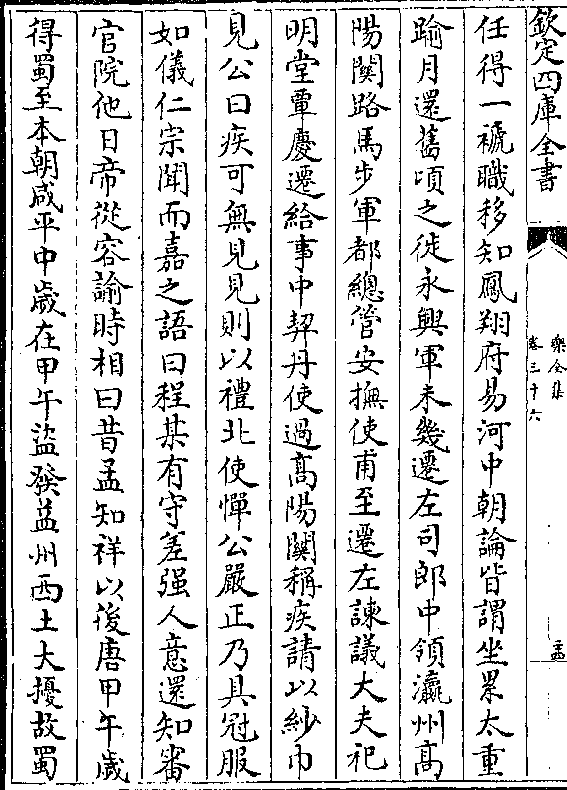 欽定四庫全書
樂全集
卷三十六
任得一褫職移知鳳翔府易河中朝論皆謂坐累太重
踰月還舊頃之徙永興軍未幾遷左司郎中領瀛州高
陽關路馬步軍都總管安撫使甫至遷左諫議大夫祀
明堂覃慶遷給事中契丹使過高陽關稱疾請以紗巾
見公曰疾可無見見則以禮北使憚公嚴正乃具冠服
如儀仁宗聞而嘉之語曰程某有守差强人意還知審
官院他日帝從容諭時相曰昔孟知祥以後唐甲午歲
得蜀至本朝咸平中歲在甲午盜發益州西土大擾故蜀